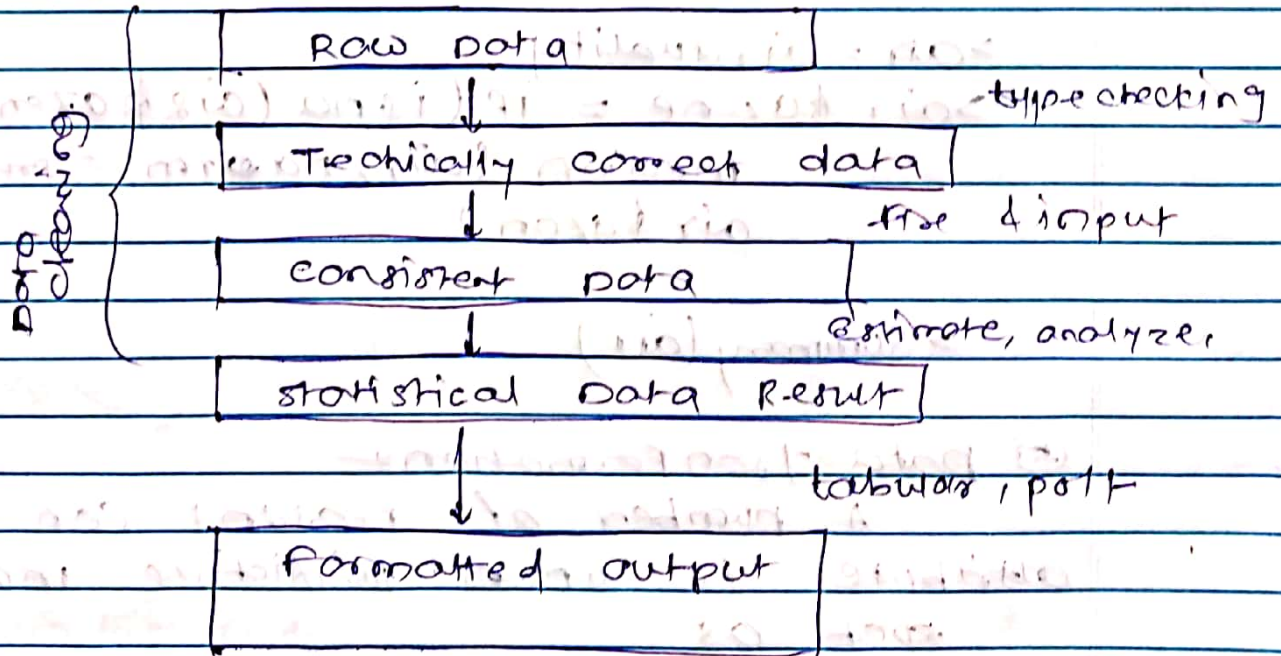 Raw Data
type checking
Techically correct data
fixe & input
Consistent Data
Estimate, analyze,
Statistical Data Result
tabular, polt
Formatted output
Data